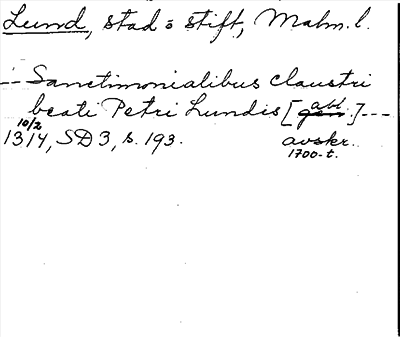 Lund, stad o stift, Malm. l.
-- Sanctimonialibus claustri
beati Petri Lundis [gen. abl.] ---
10/2 1314, SD 3, s. 193. avskr.
1700-t.